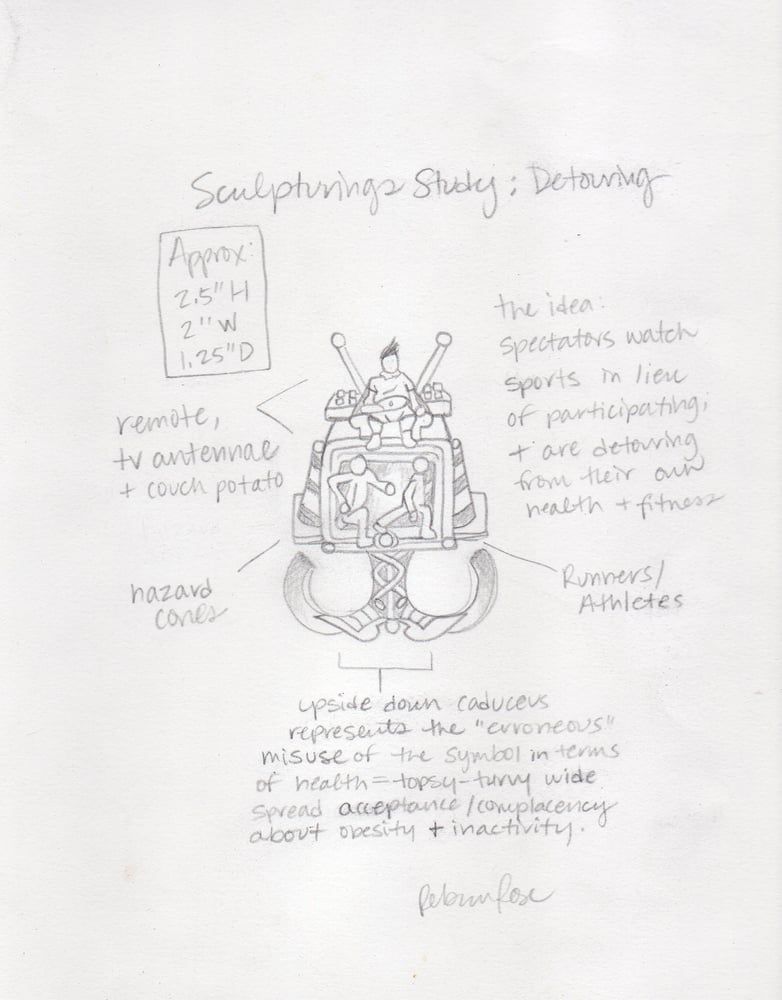 Sculpturings Study; Detouring
Approx:
2.5" H
2" W
1.25" D
the idea:
spectators watch
sports in lieu
of participating;
+ are detouring
from their own
health + fitness
remote,
tv antennae
+ couch potato
hazard
cones
Runners/
Athletes
upside down caduceus
represents the "erroneous"
misuse of the symbol in terms
of health = topsy-turvy wide
spread acceptance/complacency
about obesity + inactivity.